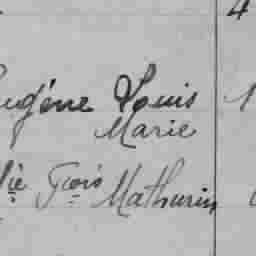 4
Eugène Louis 1
Marie
Mie Fçois Mathurin